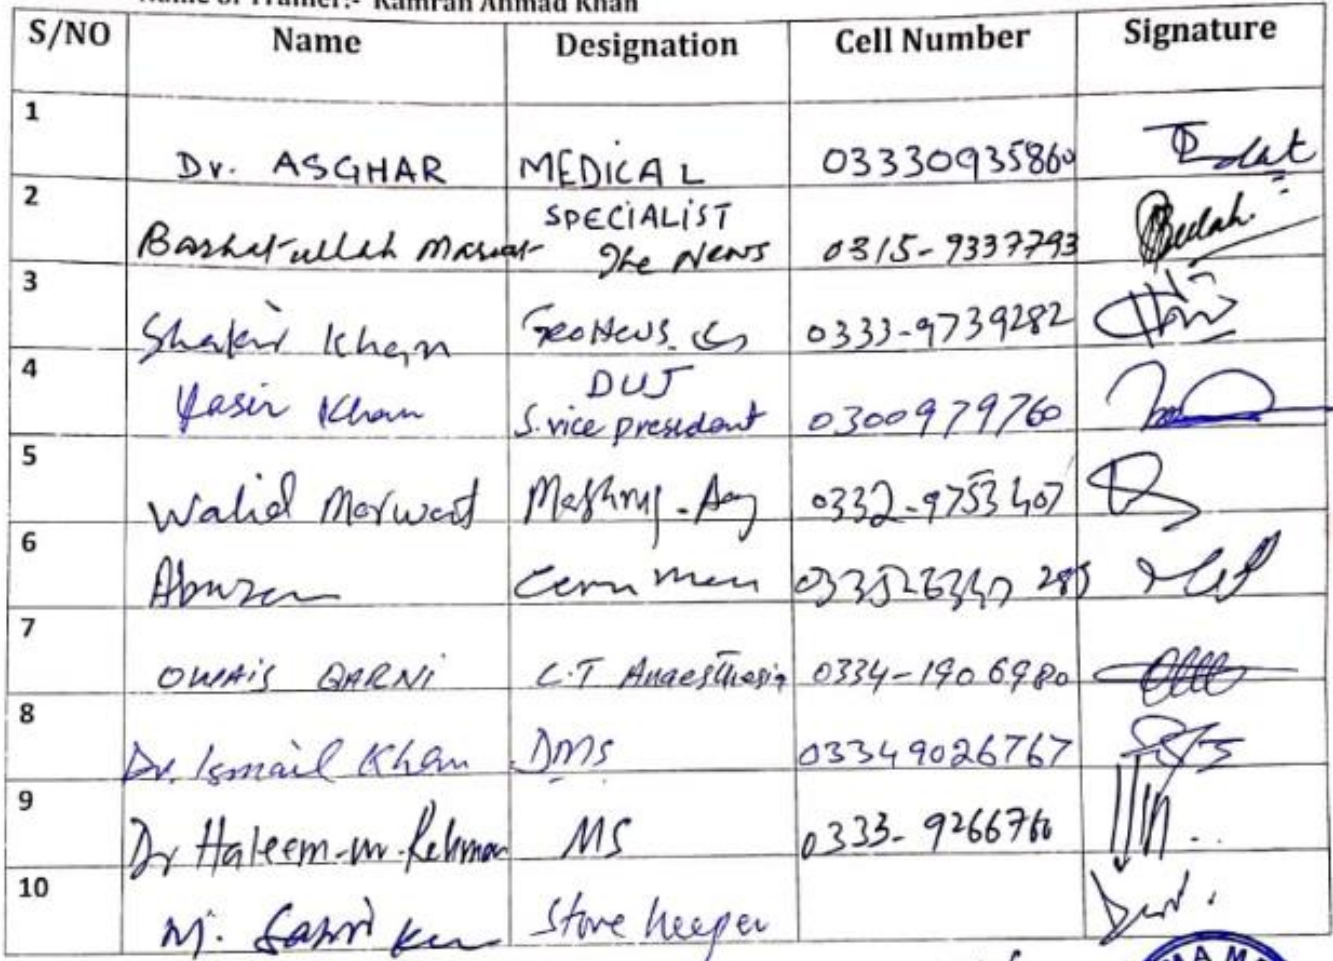 Name of Trainer:- Kamran Ahmad Khan
S/NO Name Designation Cell Number Signature
1 Dr. ASGHAR MEDICAL SPECIALIST 03330935860
2 Barkat-ullah Marwat The News 0315-9337793
3 Shakir Khan Geo News 0333-9739282
4 Yasir Khan DUJ S. vice president 0300979760
5 Walid Marwat Mashriq 0332-9753407
6
7 OWAIS QARNI C.T Anaesthesia 0334-1906980
8 Dr. Ismail Khan DMS 03349026767
9 Dr Haleem-ur-Rehman MS 0333-9266760
10 M. Store keeper